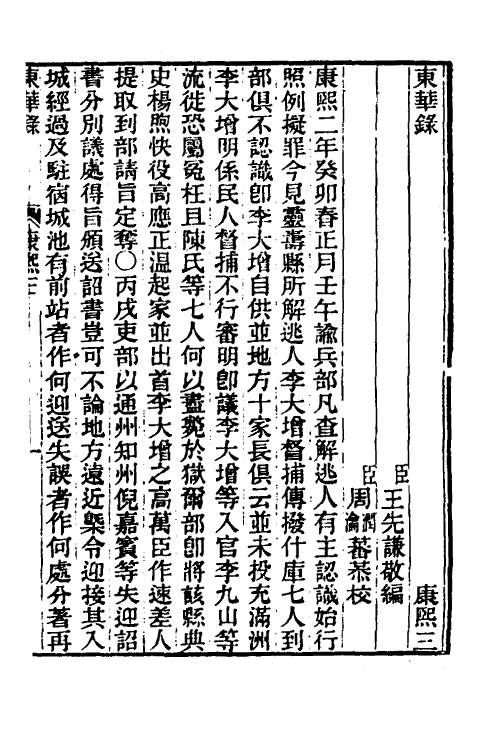 東華錄　康熙三
臣王先謙敬編
臣周潤蕃瀹蕃恭校
康熙二年癸卯春正月壬午諭兵部凡查解逃人有主認識始行
照例擬罪今見靈壽縣所解逃人李大增督捕傳撥什庫七人到
部俱不認識卽李大增自供並地方十家長俱云並未投充滿洲
李大增明係民人督捕不行審明卽議李大增等入官李九山等
流徙恐屬冤枉且陳氏等七人何以盡斃於獄爾部卽將該縣典
史楊煦快役高應正温起家並出首李大增之高萬臣作速差人
提取到部請旨定奪〇丙戌吏部以通州知州倪嘉賓等失迎詔
書分別議處得旨頒送詔書豈可不論地方遠近槩令迎接其入
城經過及駐宿城池有前站者作何迎送失誤者作何處分著再
東華錄　康熙三　一